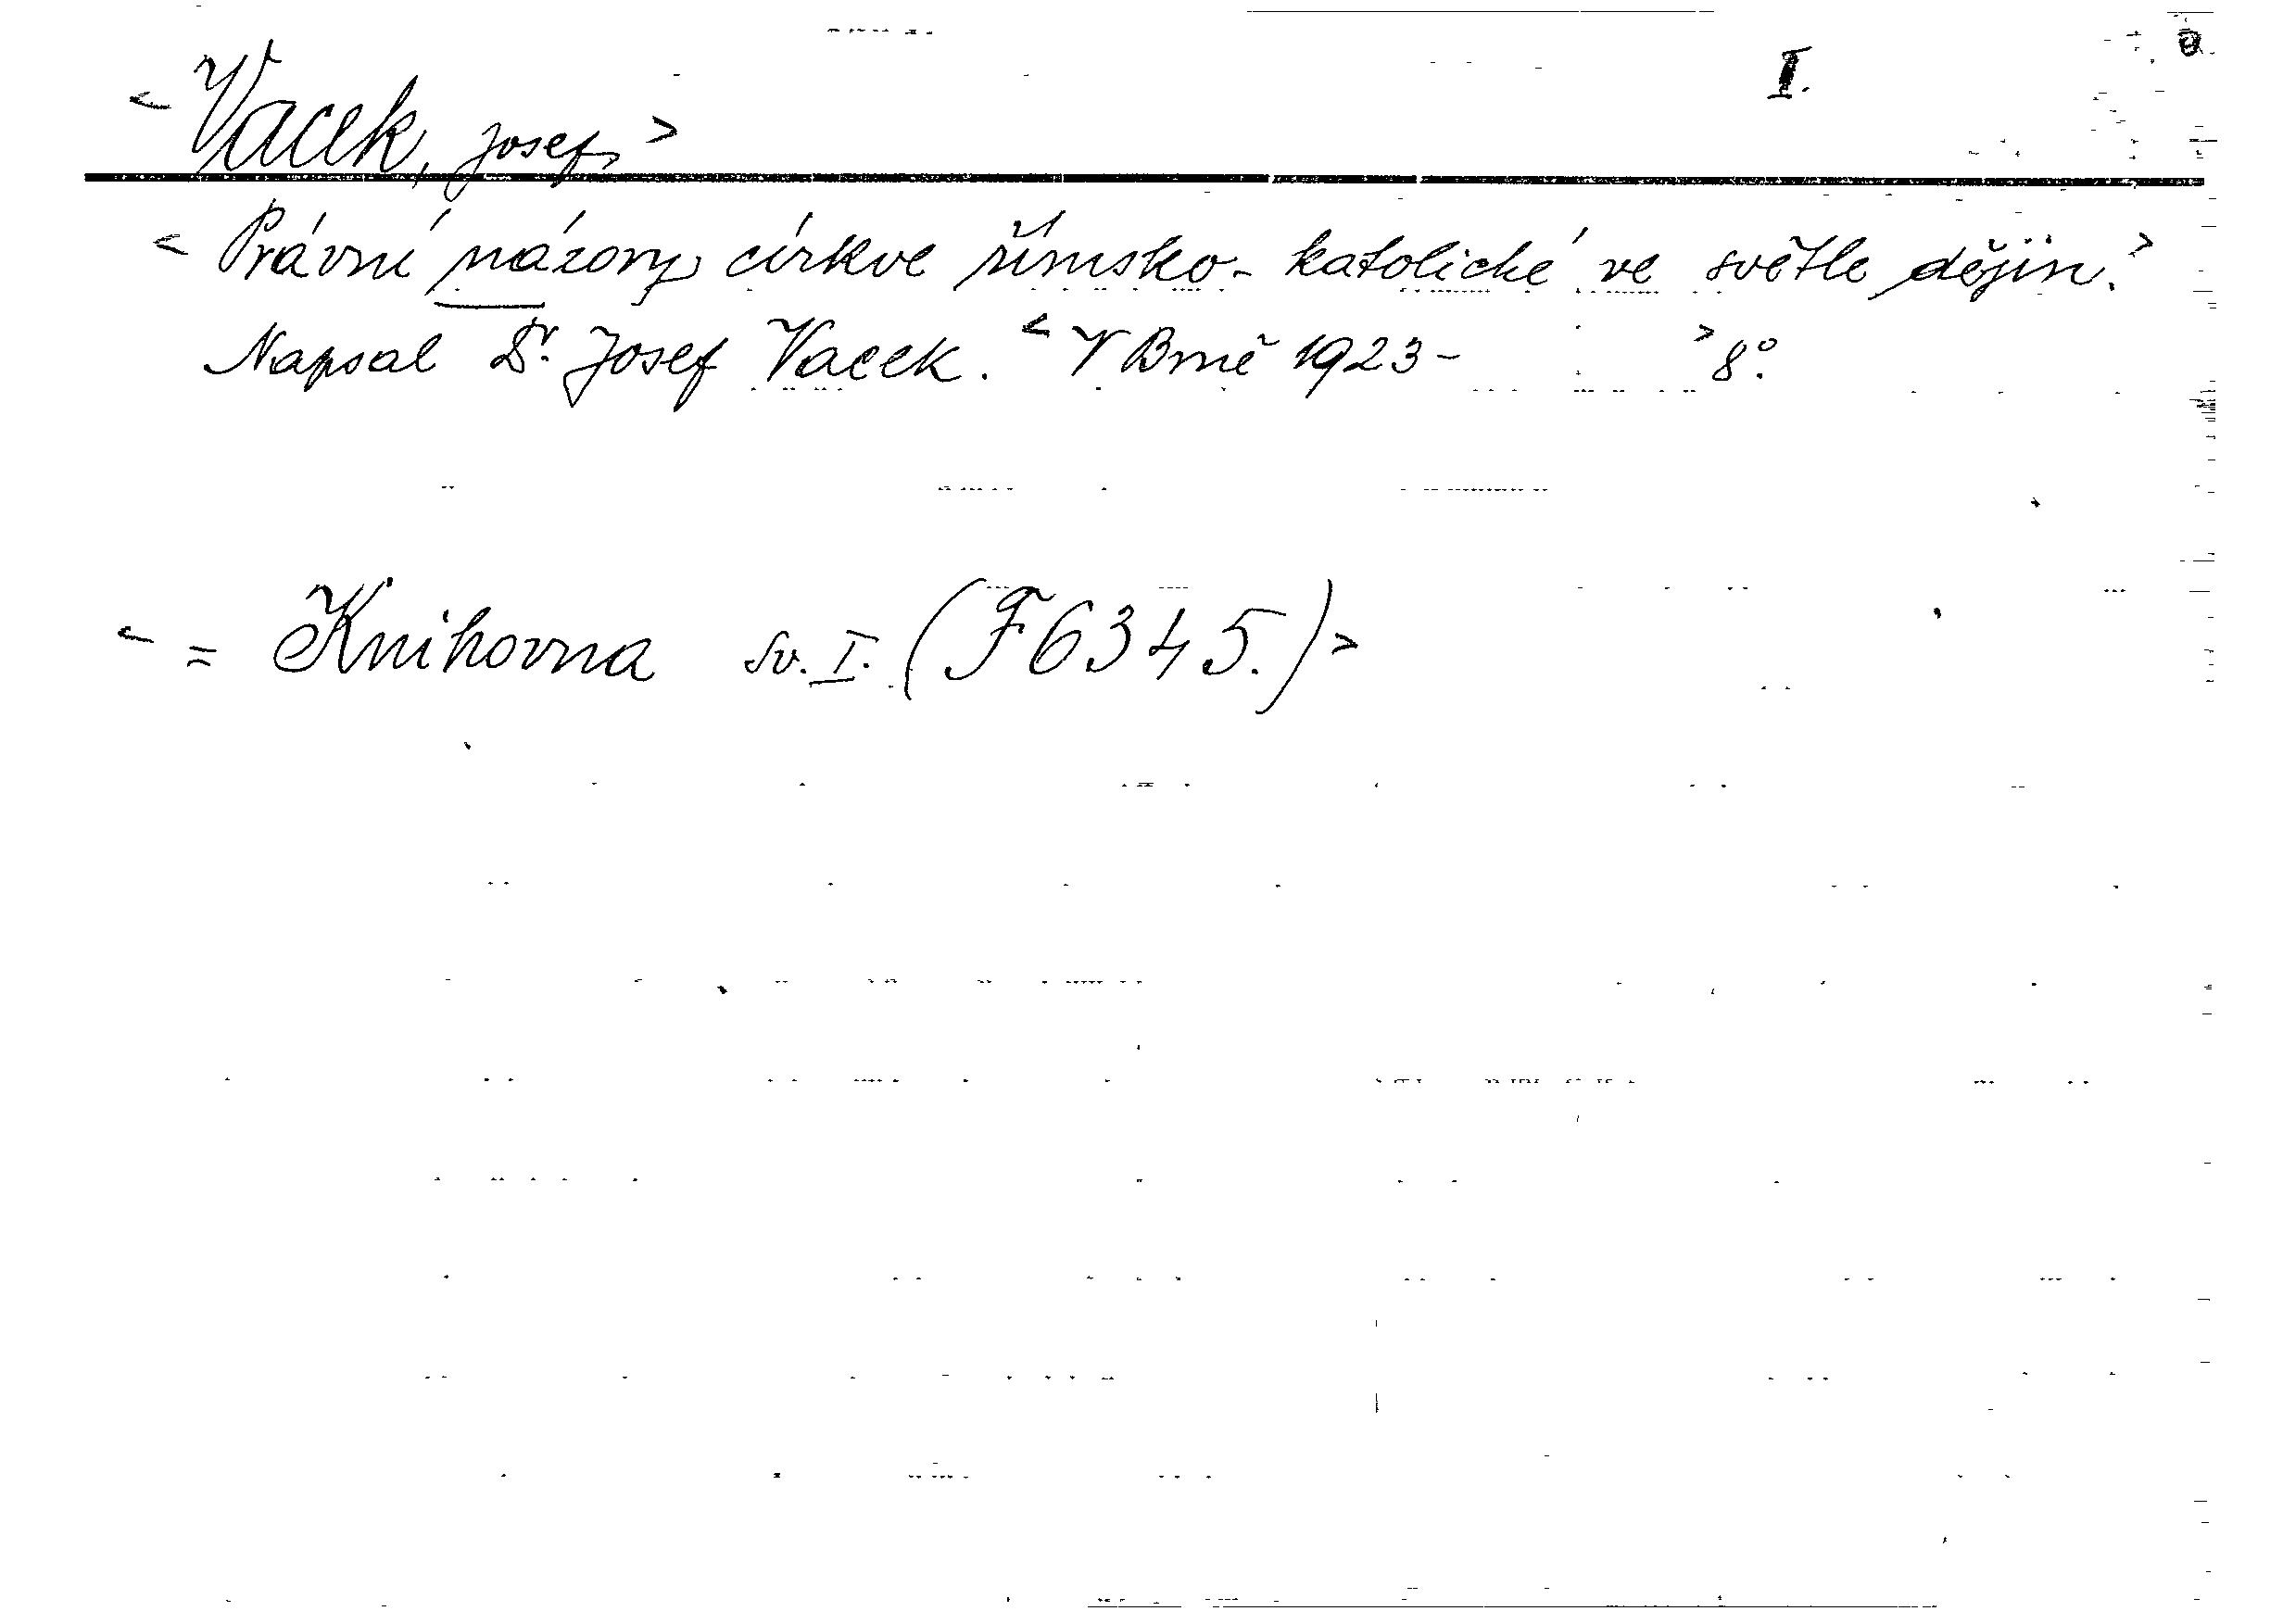 I.
< Vacek, Josef >
< Právní názory církve římsko-katolické ve světle dějin. >
Napsal Dr. Josef Vacek. < V Brně 1923- > 8°.
< = Knihovna sv. I. (F6345.) >